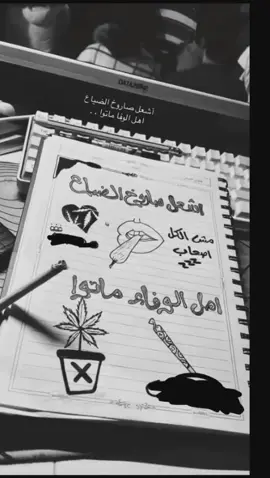 أشعل صاروخ الضياع
اهل الوفا ماتوا ..
اشعل صاروخ الضياع
مش الكل
اصحاب
zzz
اهل الوفاء ماتوا
X